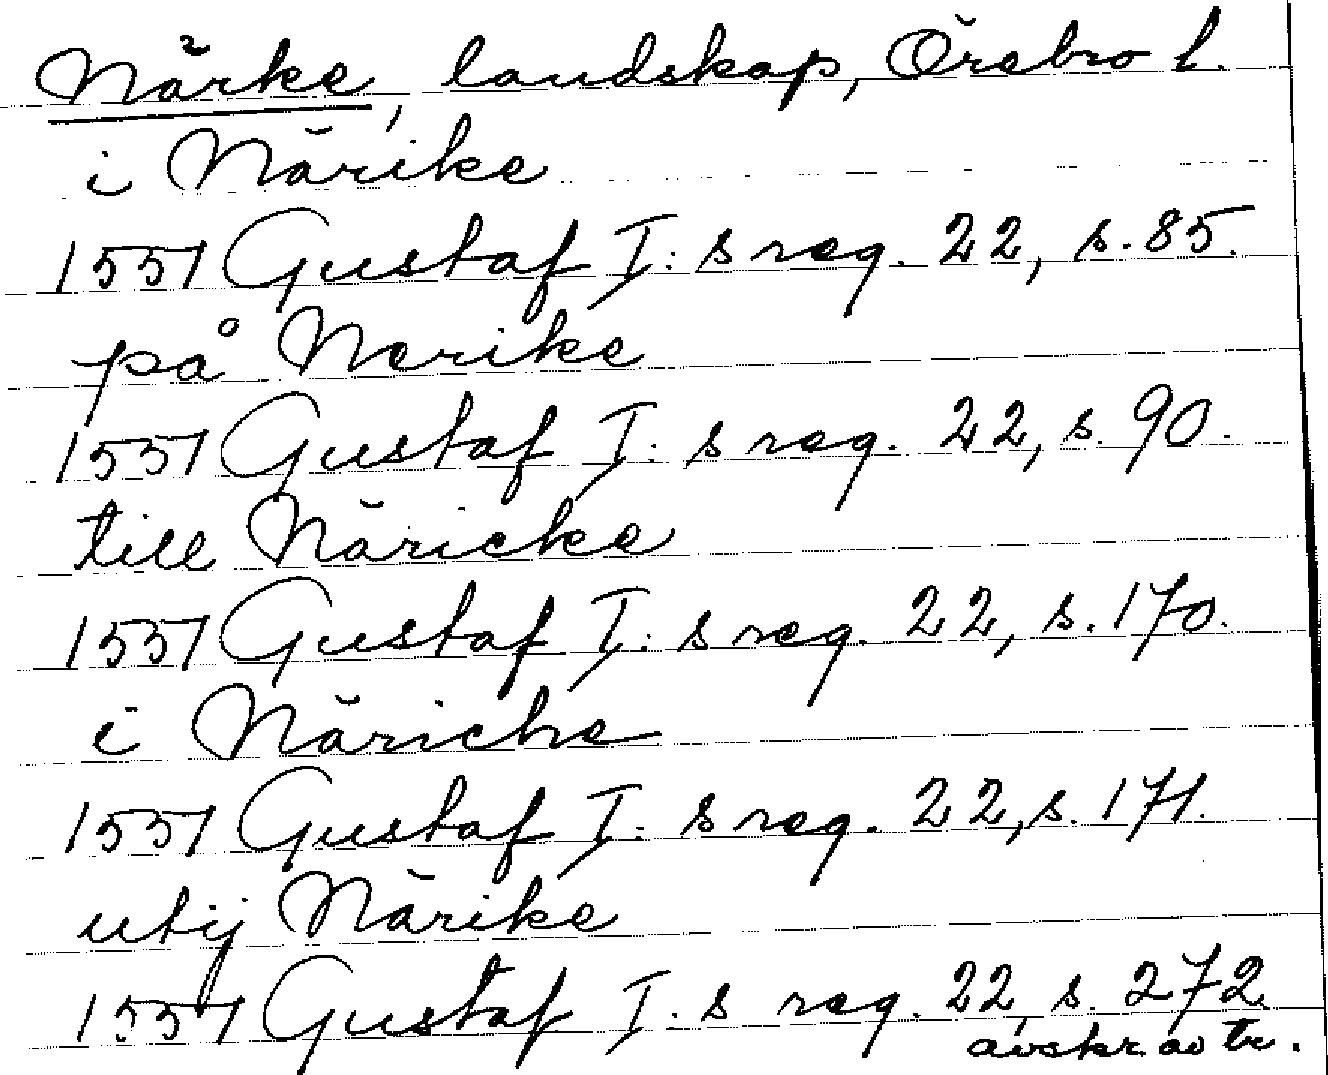 Närke, landskap, Örebro l.
i Närike
1551 Gustaf I: s reg. 22, s. 85.
på Nerike
1551 Gustaf I: s reg. 22, s. 90.
till Näricke
1551 Gustaf I: s reg. 22, s. 170.
i Näriche
1551 Gustaf I: s reg. 22, s. 171.
utij Närike
1551 Gustaf I. s reg. 22, s. 272
avskr. av tr.